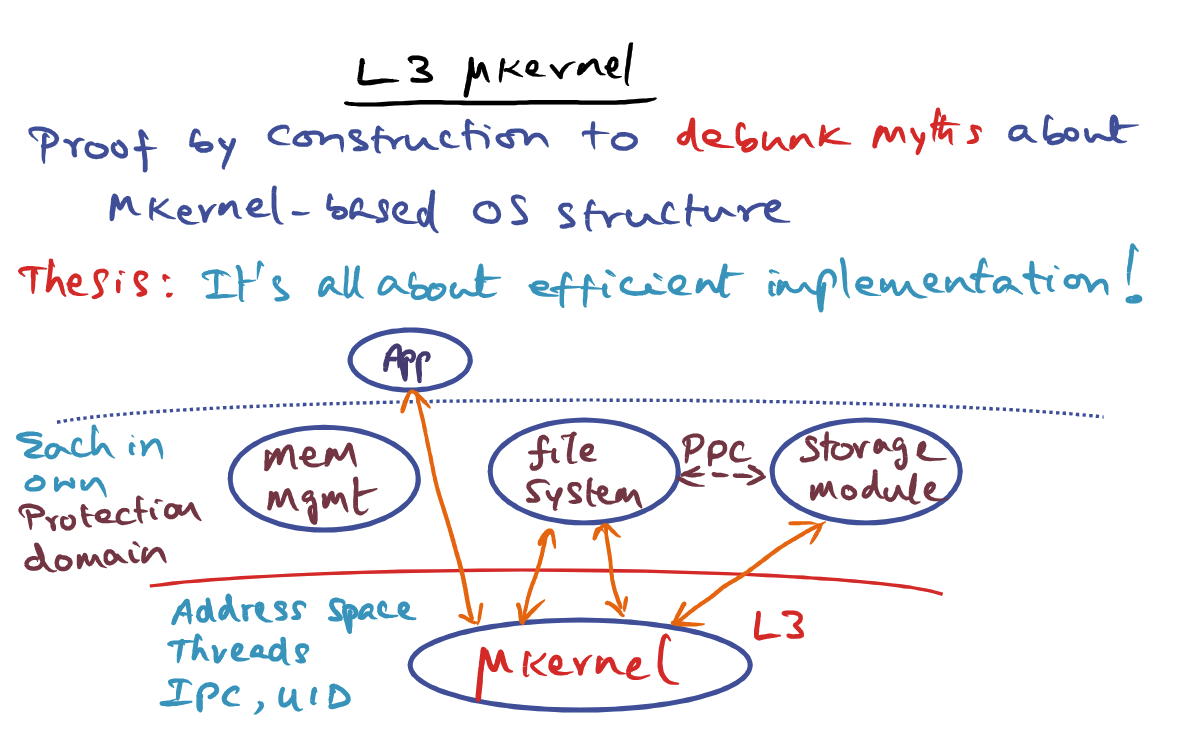 L3 µkernel
Proof by construction to debunk myths about
µkernel-based OS structure
Thesis: It's all about efficient implementation!
App
Each in
own
Protection
domain
mem
mgmt
file
system
PPC
storage
module
Address space
Threads
IPC, UID
µkernel
L3